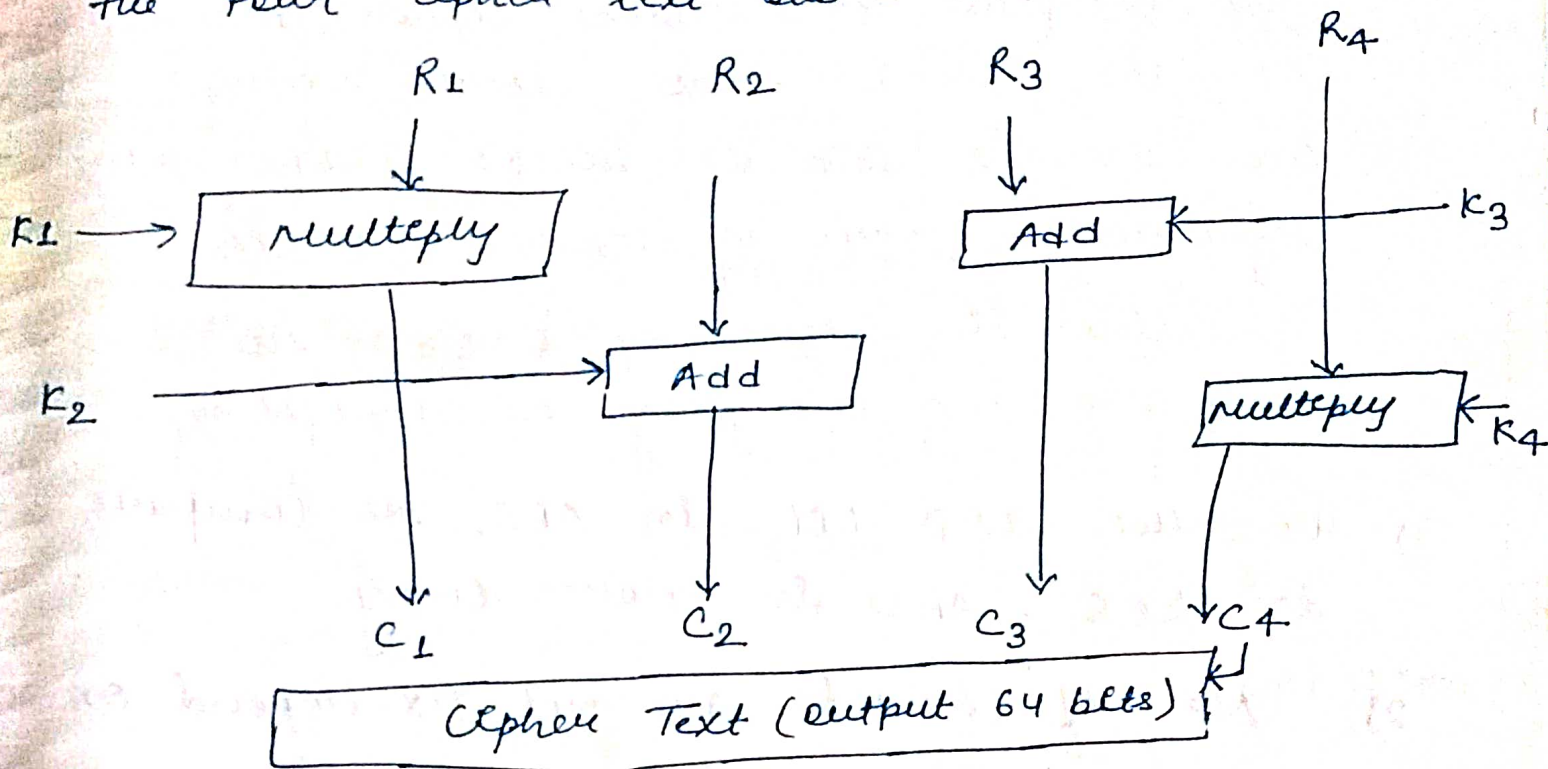 R4
R1 R2 R3
K1 Multiply Add K3
K2 Add Multiply K4
C1 C2 C3 C4
Cipher Text (output 64 bits)